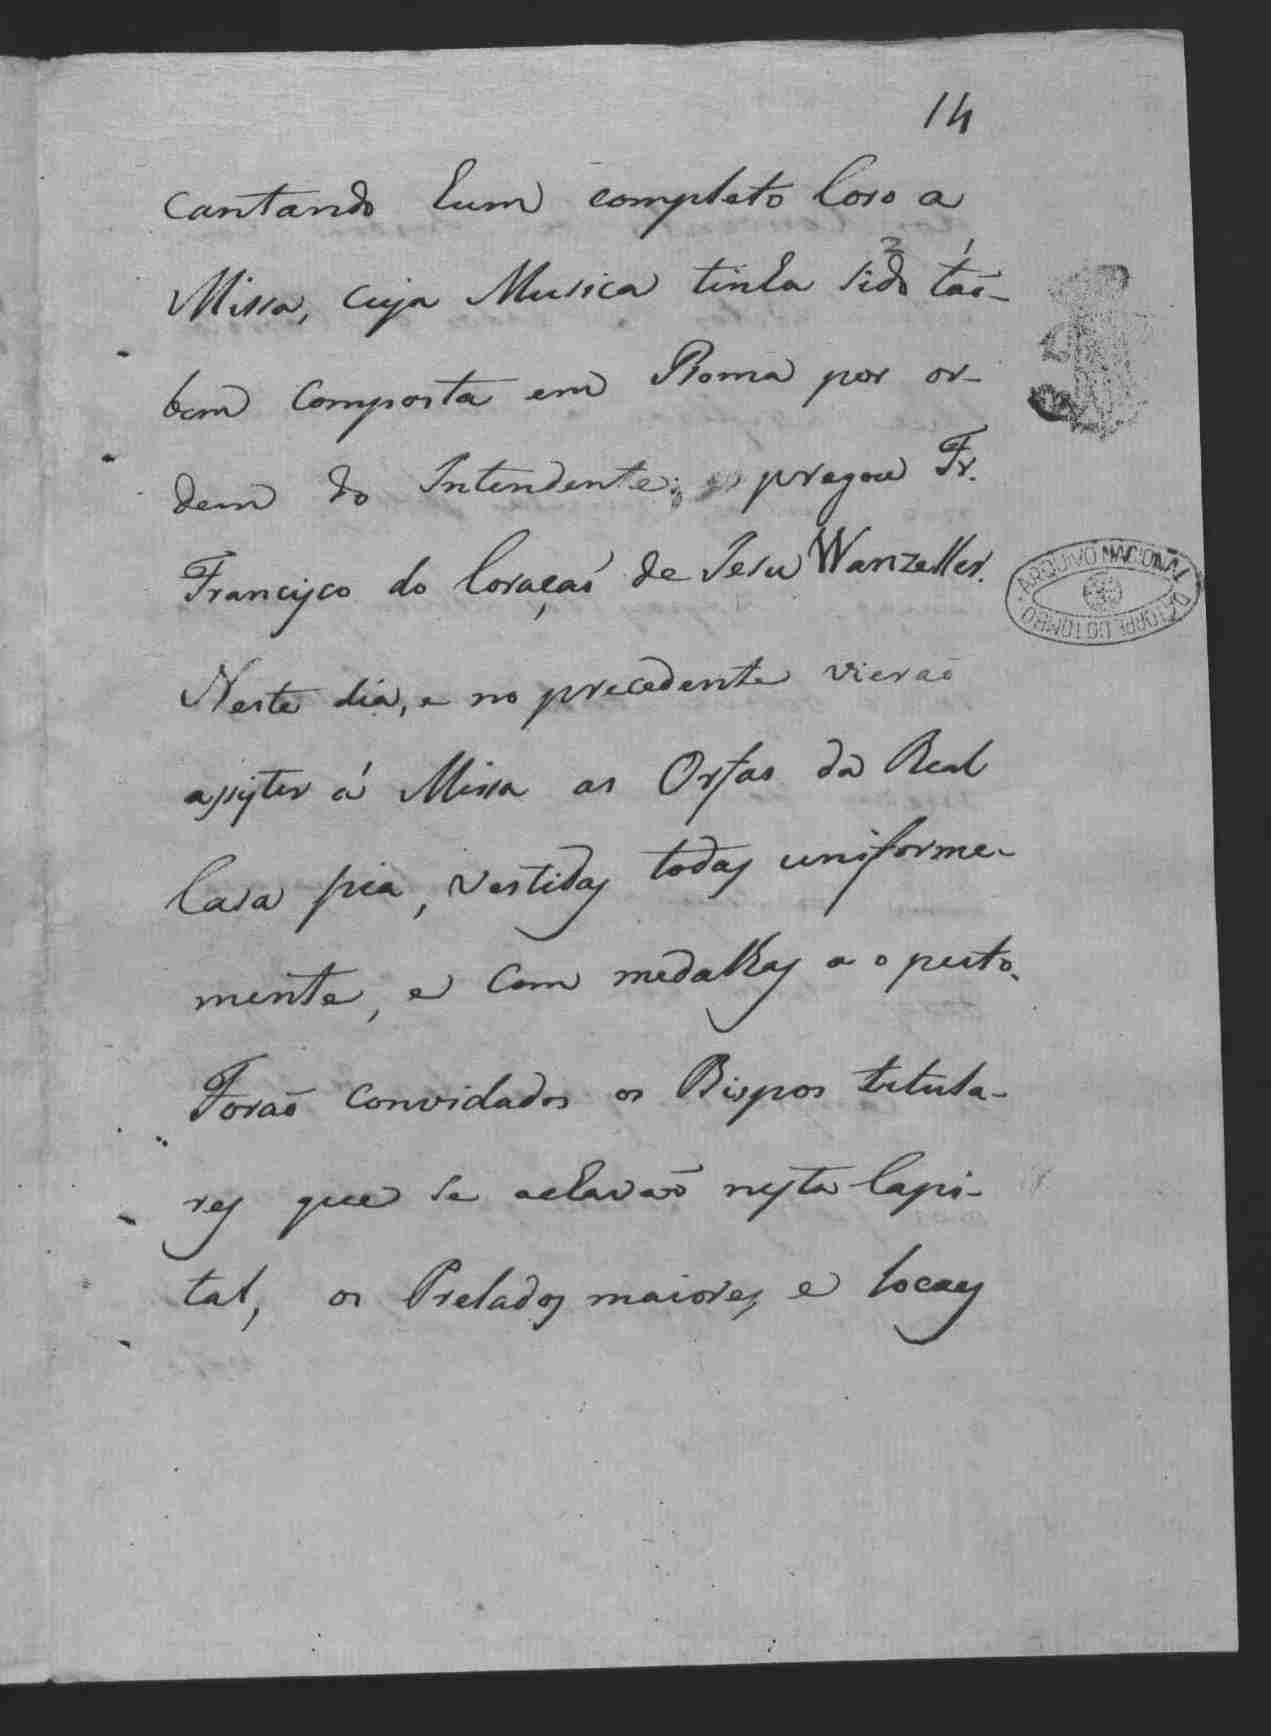 14
cantando hum completo Coro a
Missa, cuja Musica tinha sido taõ-
bem composta em Roma por or-
dem do Intendente; pregou Fr.
Francisco do Coraçaõ de Jesu Wanzeller.
Neste dia, e no precedente vieraõ
assistir á Missa as Orfas da Real
Casa pia, vestidas todas uniforme-
mente, e com medalhas ao peito.
Foraõ convidados os Bispos titula-
res que se achavaõ nesta Capi-
tal, os Prelados maiores, e locaes
ARQUIVO NACIONAL DA TORRE DO TOMBO